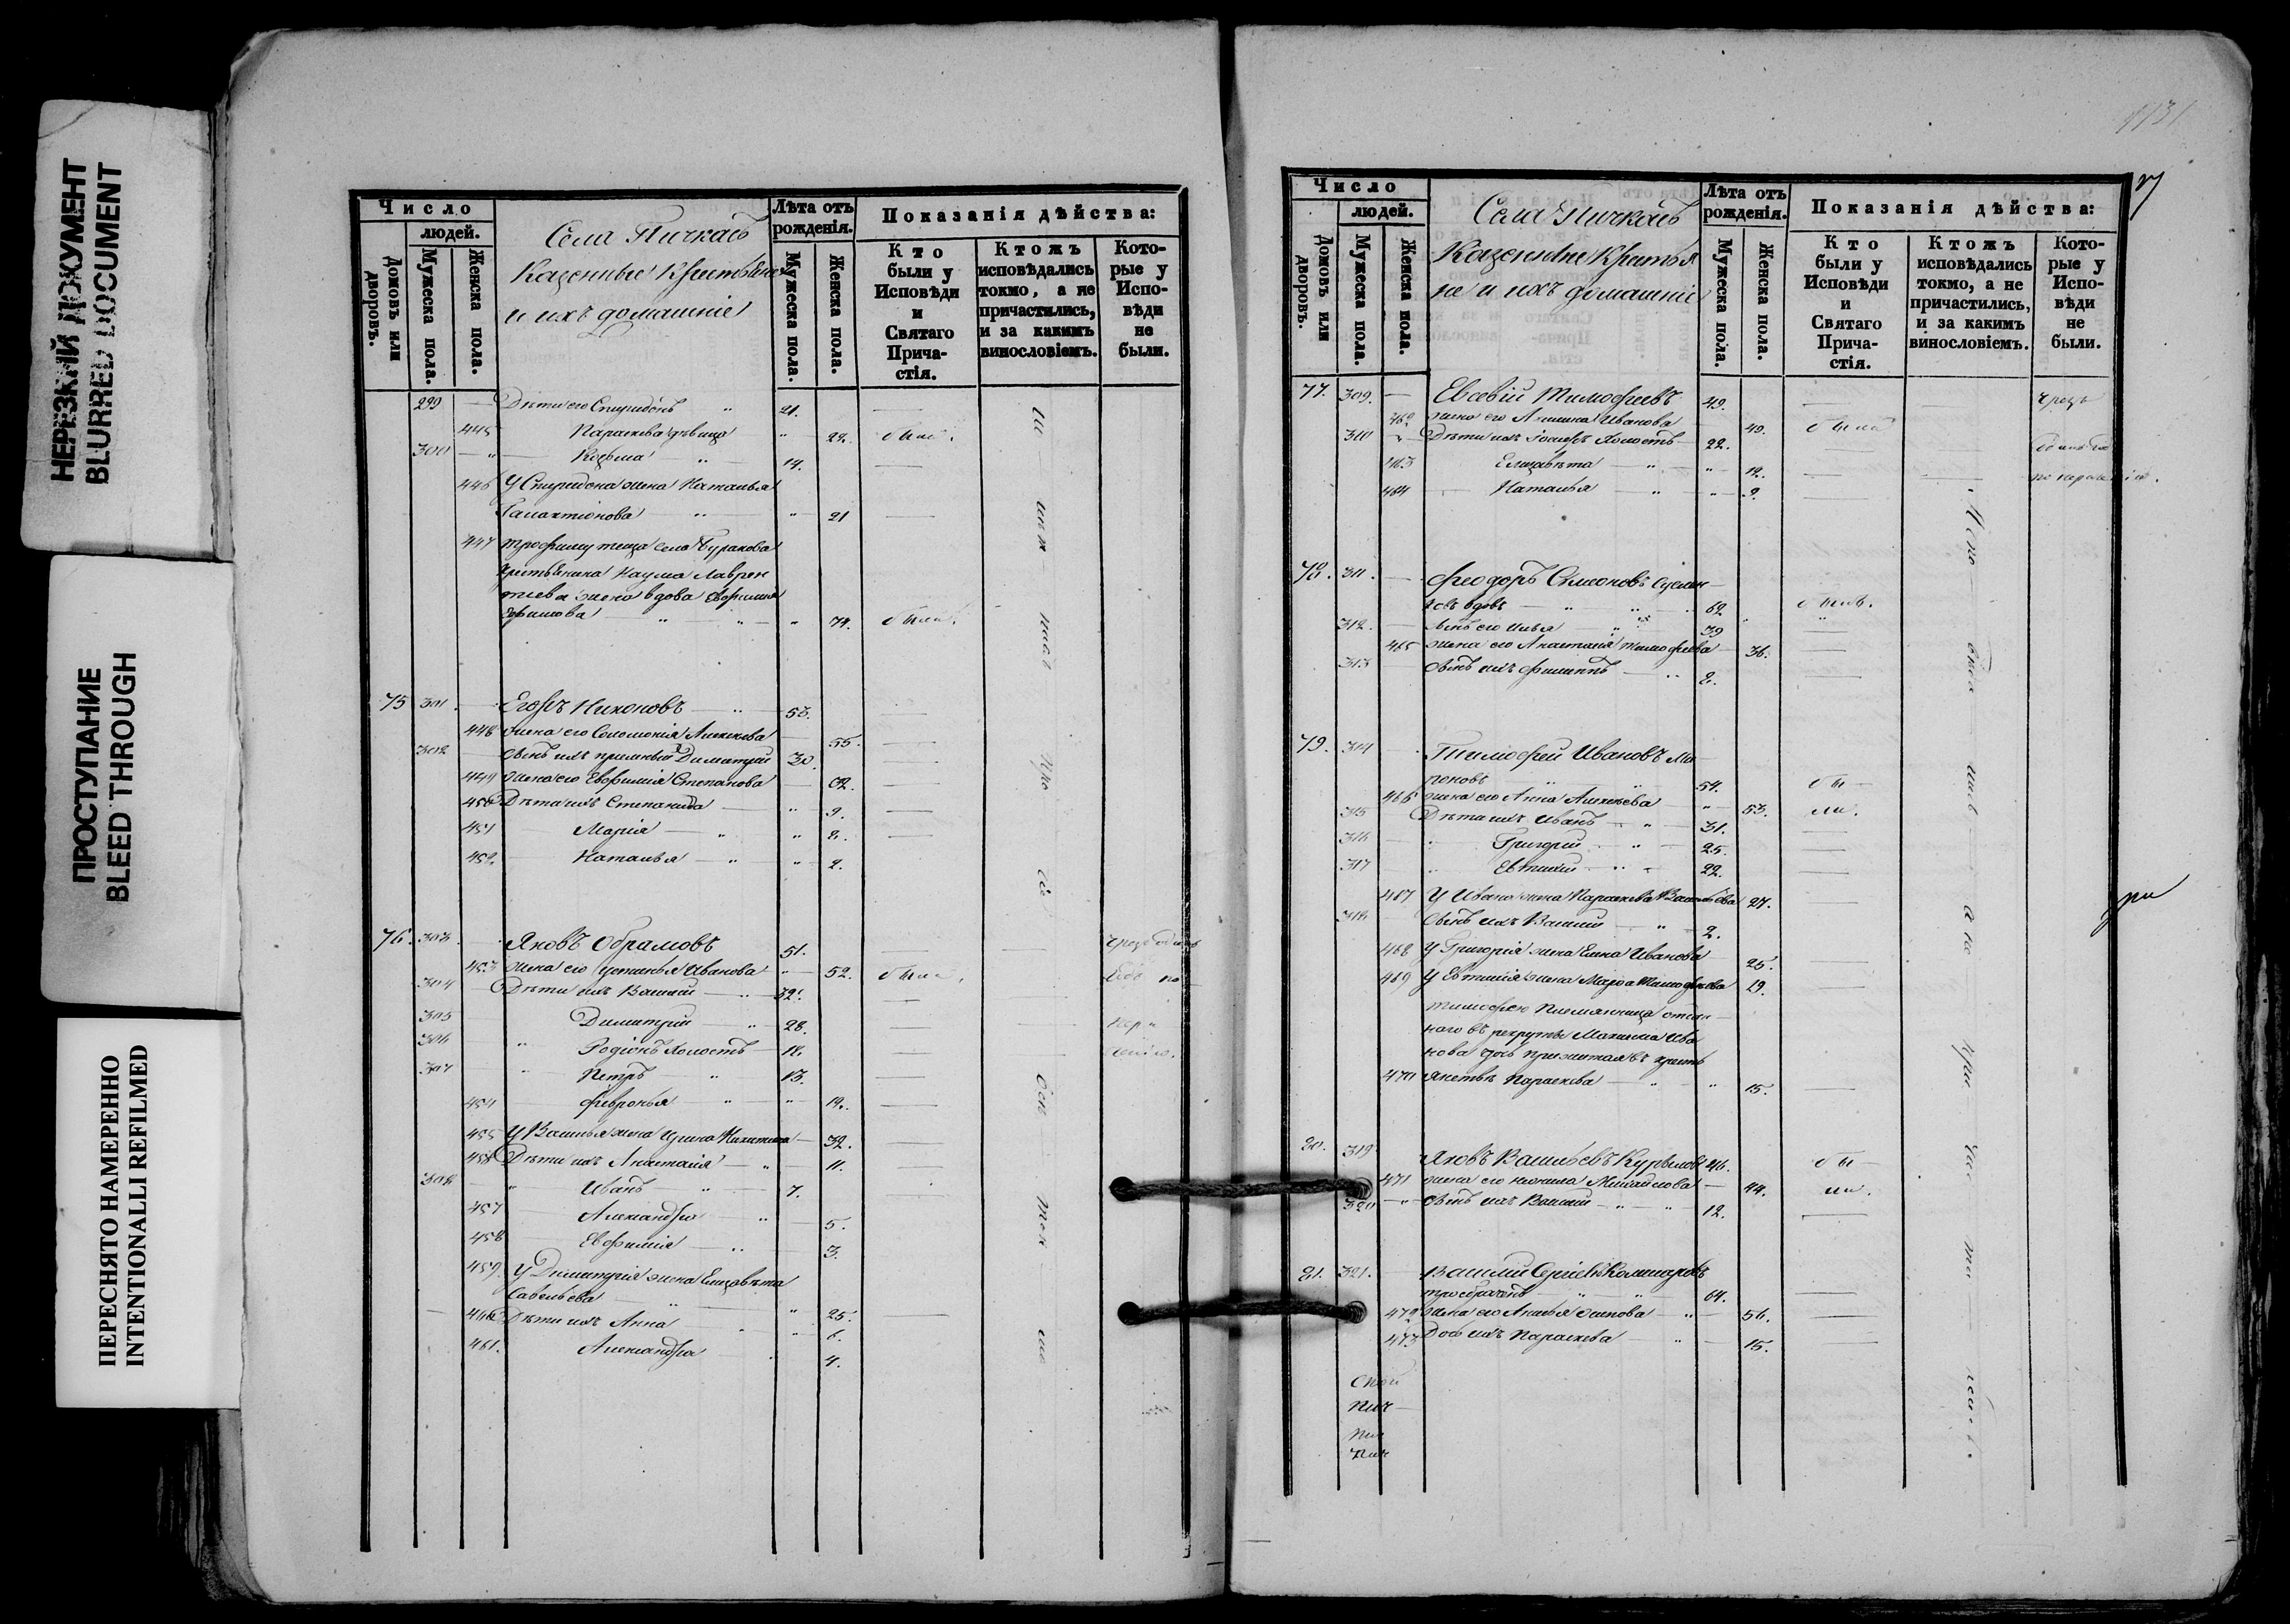 НЕРЕЗКИЙ ДОКУМЕНТ
BLURRED DOCUMENT
ПРОСТУПАНИЕ
BLEED THROUGH
ПЕРЕСНЯТО НАМЕРЕННО
INTENTIONALLI REFILMED
Число
людей.
Домовъ или дворовъ.
Мужеска пола.
Женска пола.
Села Пичкасъ
Казенные Крестьяне
и ихъ домашніе
Лѣта отъ рожденія.
Мужеска пола.
Женска пола.
Показанія дѣйства:
Кто были у Исповѣди и Святаго Прича-стія.
Ктожъ исповѣдались токмо, а не причастились, и за какимъ винословіемъ.
Кото-рые у Испо-вѣди не были.
299 Дѣти его Спиридонъ 21.
445 Параскева дѣвица 22. была.
300 Козьма 14.
446 У Спиридона жена Наталья
Галактіонова 21
447 Трофиму теща села Буракова
крестьянина Наума Лаврен
тьева жена вдова Евфимія
74. была.
75 301 Егоръ Никоновъ 53.
448 жена его Соломонія Алексѣева 55.
302 сынъ ихъ пріемный Димитрій 30.
449 жена его Евфимія Степанова 32.
450 Дѣти ихъ Степанида 9.
451 Марія
452. Наталья 2.
76. 303. Яковъ Абрамовъ 51.
453 жена его Устинья Иванова 52. была.
304 Дѣти ихъ Василій 32.
305 Димитрій 28.
306 Родіонъ холостъ 18.
307 Петръ 13.
454 Февронья 19.
455 У Василья жена Ирина Никитина 32.
456 Дѣти ихъ Анастасія 11.
308 Иванъ 7.
457 Александра 5.
458 Евфимія 3.
459. У Димитрія жена Елизавѣта
Савельева 25.
460 Дѣти ихъ Анна 6.
461. Александра 4.
1131
Число
людей.
Домовъ или дворовъ.
Мужеска пола.
Женска пола.
Села Пичкасъ
Казенные Крестья
не и ихъ домашніе
Лѣта отъ рожденія.
Мужеска пола.
Женска пола.
Показанія дѣйства:
Кто были у Исповѣди и Святаго Прича-стія.
Ктожъ исповѣдались токмо, а не причастились, и за какимъ винословіемъ.
Кото-рые у Испо-вѣди не были.
77. 309. Евсевій Тимофеевъ 49.
462 жена его Иванова 49. была
310 Дѣти ихъ Іосифъ холостъ 22.
463 Елизавѣта 12.
464 Наталья 9.
78. 311. Феодоръ Симоновъ
вдовъ 62. былъ.
312. сынъ его Илья 39
465 жена его Анастасія Тимофеева 36.
313 сынъ ихъ Филиппъ 2.
79. 314 Тимофей Ивановъ Ми
роновъ 54. бы
466 жена его Анна Алексѣева 53. ли.
315 Дѣти ихъ Иванъ 31.
316 Григорій 25.
317 Евтихій 22.
467 У Ивана жена Параскева Васильева 27.
318 сынъ ихъ Василій 2.
468 У Григорія жена Елена Иванова 25.
469 У Евтихія жена Марфа Тимофеева 19.
Тимофею племянница отдан
наго въ рекруты Максима Ива
нова дочь прижитая въ кресть
470 янствѣ Параскева 15.
80. 319 Яковъ Васильевъ 46. бы
471 жена его Михайлова 44. ли.
320 сынъ ихъ Василій 12.
81. 321. Василій Сергѣевъ
троебрачный 64.
472 жена его 56.
473 Дочь ихъ Параскева 15.